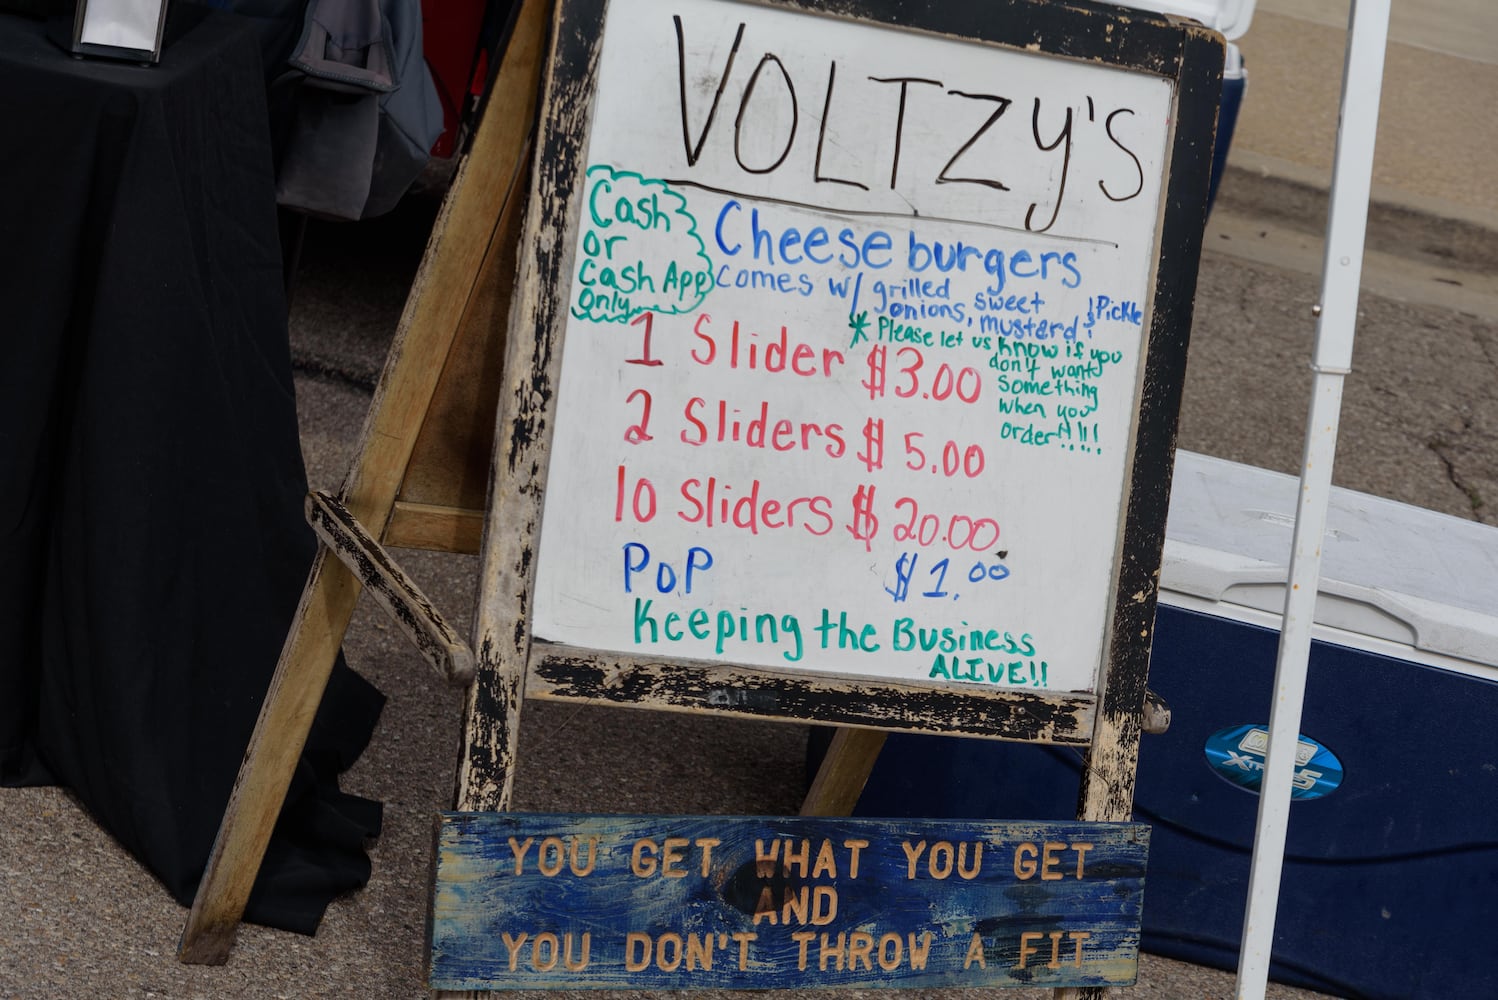 VOLTZY'S
Cash
or
Cash App
Only
Cheeseburgers
Comes w/ grilled
onions, sweet
mustard, & Pickle
* Please let us know if you
don't want
something
when you
order!!!!!
1 Slider $3.00
2 Sliders $5.00
10 Sliders $20.00
PoP $1.00
Keeping the Business
ALIVE!!
YOU GET WHAT YOU GET
AND
YOU DON'T THROW A FIT